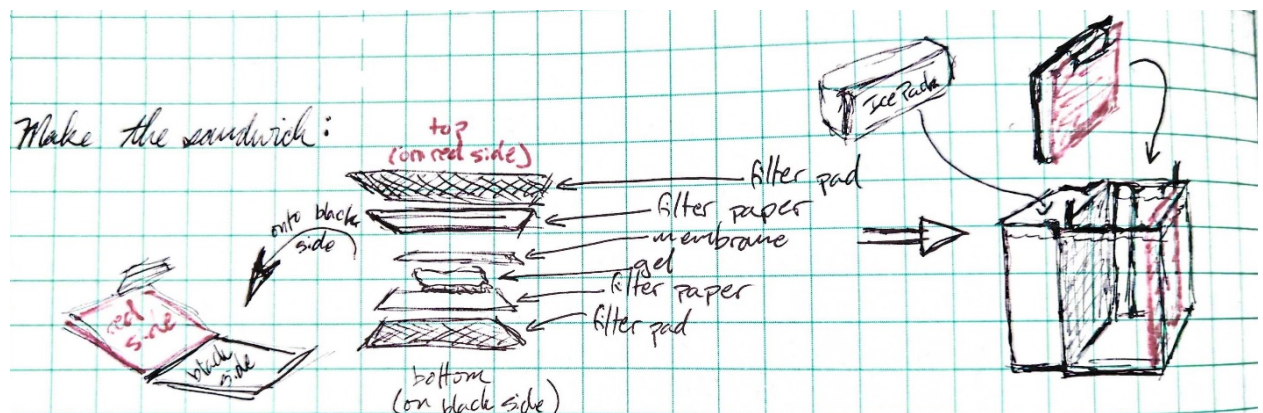 Make the sandwich:
top
(on red side)
filter pad
filter paper
membrane
gel
filter paper
filter pad
bottom
(on black side)
onto black
side
red
side
black
side
Ice Pack